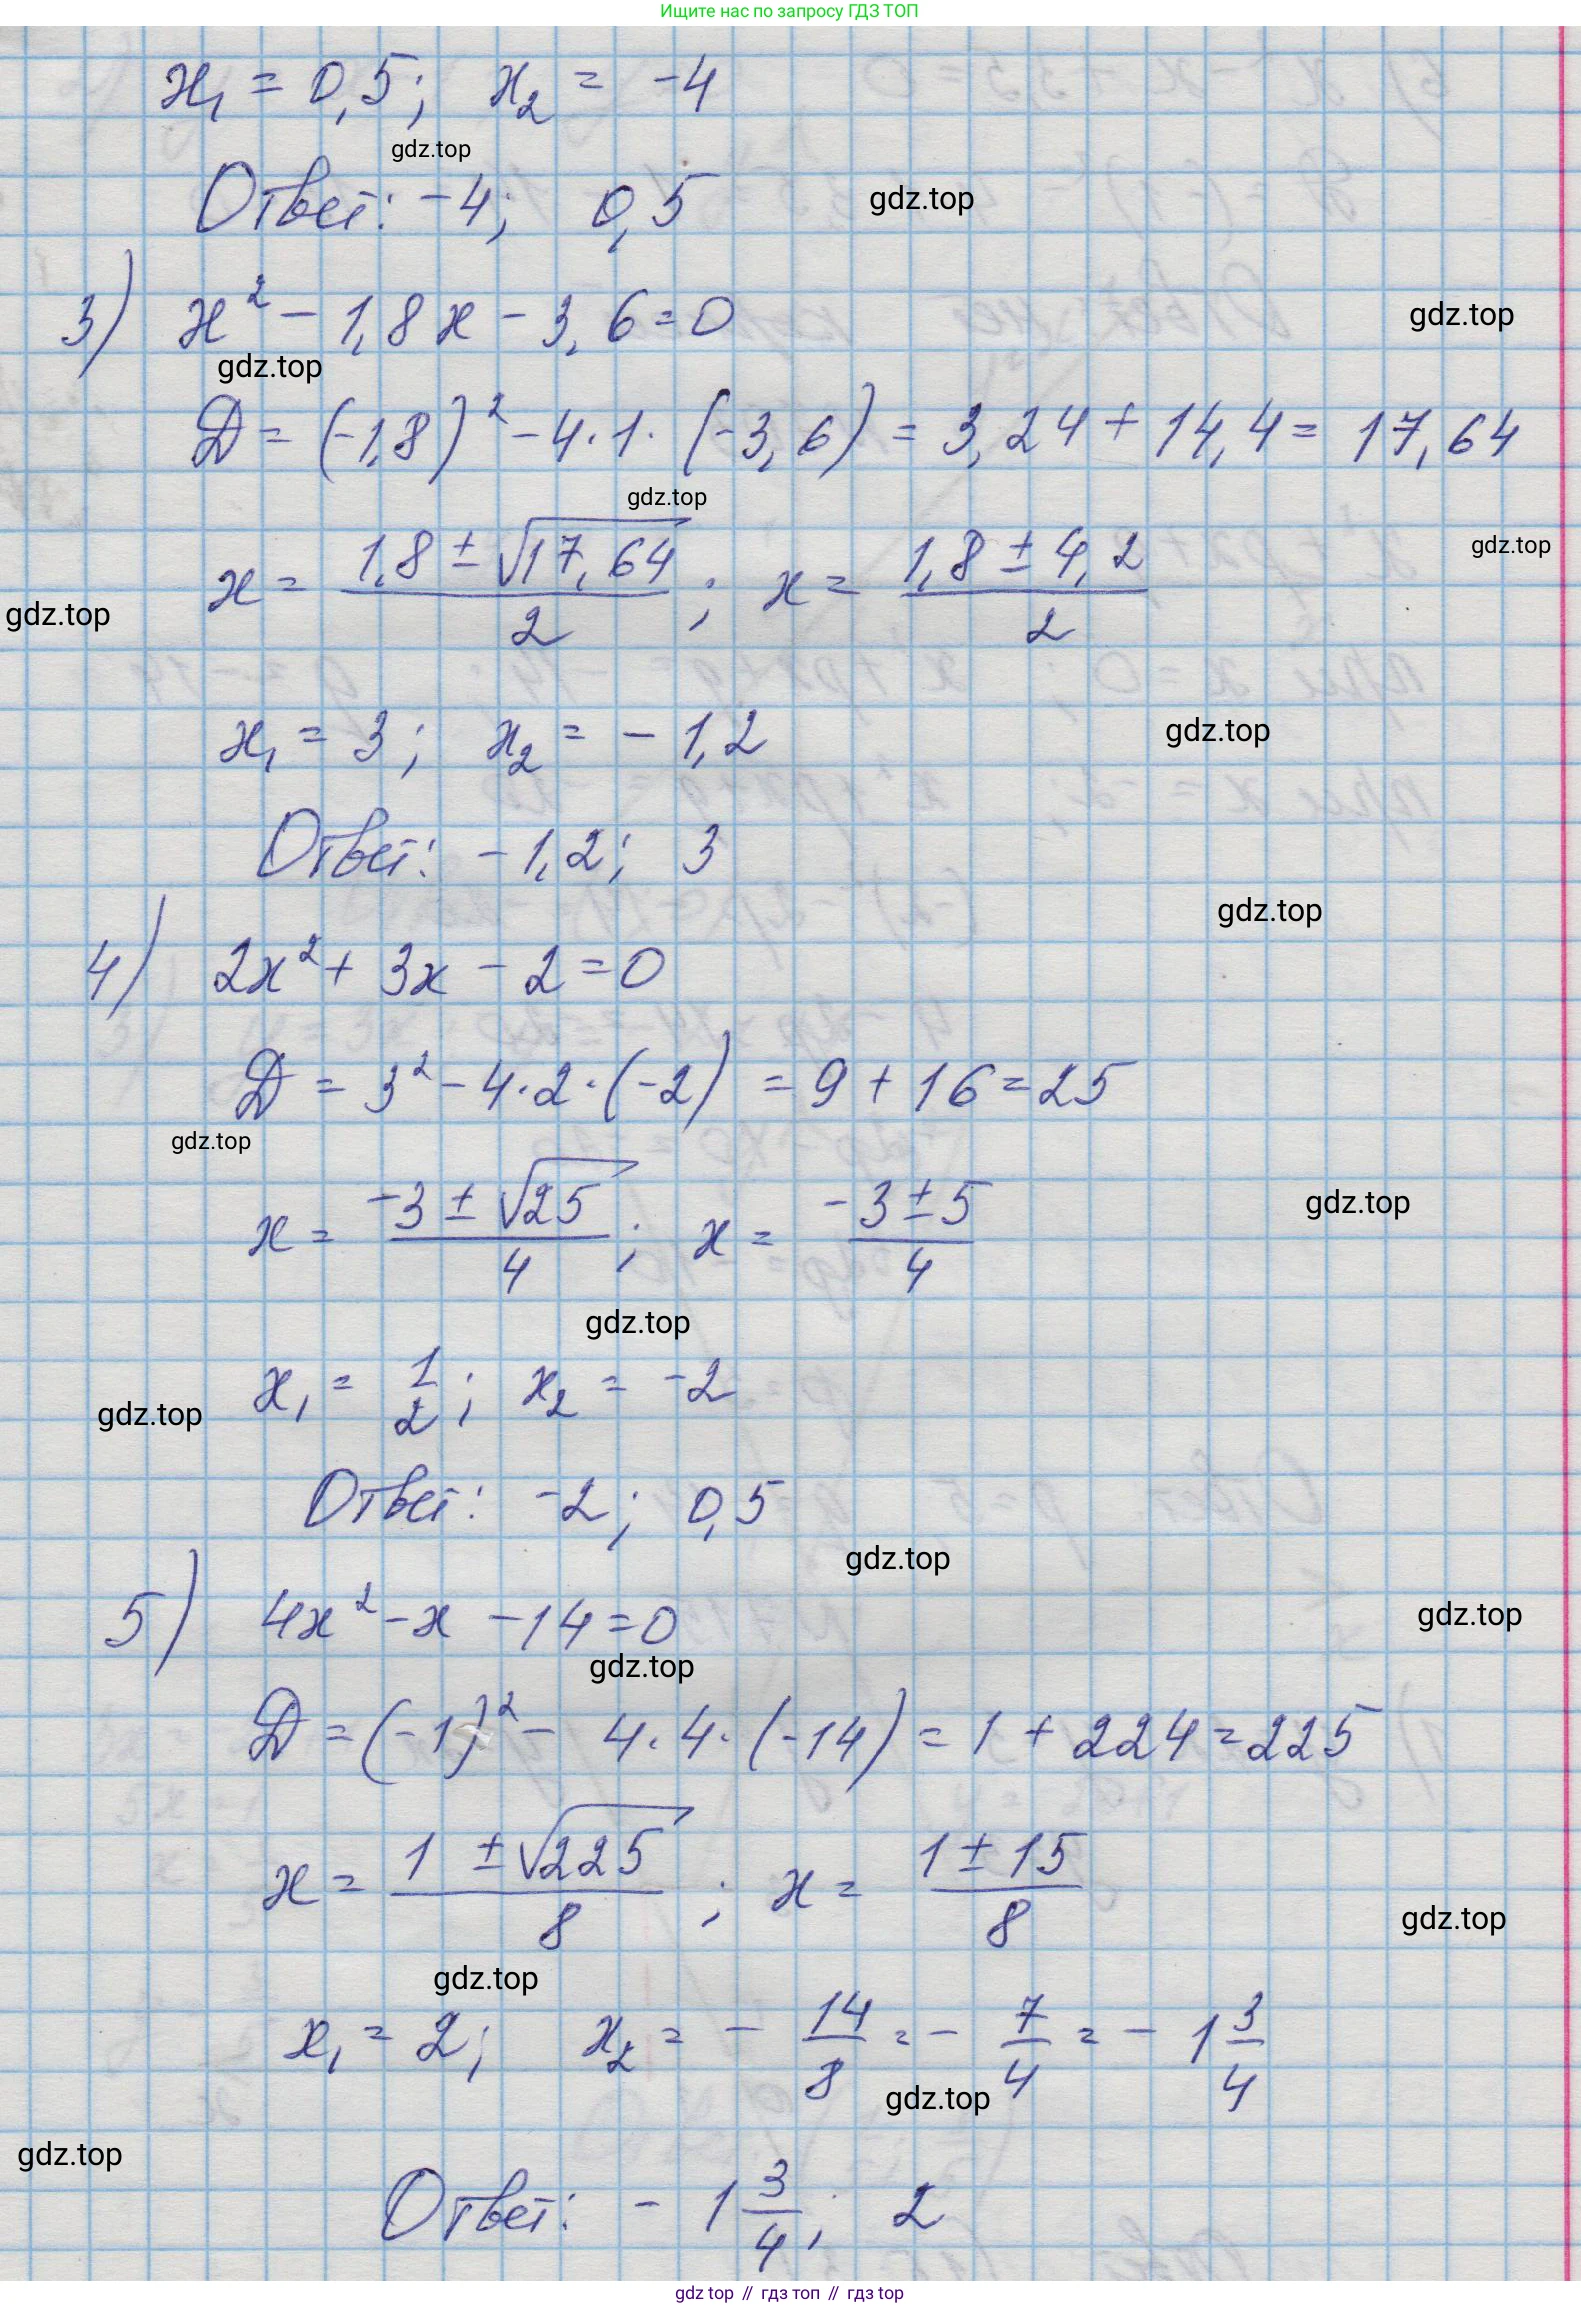 Ищите нас по запросу ГДЗ ТОП
x₁ = 0,5; x₂ = -4
gdz.top
Ответ: -4; 0,5
gdz.top
3) x² - 1,8x - 3,6 = 0
gdz.top
gdz.top
D = (-1,8)² - 4·1·(-3,6) = 3,24 + 14,4 = 17,64
gdz.top
x = (1,8 ± √17,64)/2 ; x = (1,8 ± 4,2)/2
gdz.top
gdz.top
x₁ = 3; x₂ = -1,2
gdz.top
Ответ: -1,2; 3
gdz.top
4) 2x² + 3x - 2 = 0
D = 3² - 4·2·(-2) = 9 + 16 = 25
gdz.top
x = (-3 ± √25)/4 ; x = (-3 ± 5)/4
gdz.top
gdz.top
x₁ = 1/2; x₂ = -2
gdz.top
Ответ: -2; 0,5
gdz.top
5) 4x² - x - 14 = 0
gdz.top
gdz.top
D = (-1)² - 4·4·(-14) = 1 + 224 = 225
x = (1 ± √225)/8 ; x = (1 ± 15)/8
gdz.top
gdz.top
x₁ = 2; x₂ = - 14/8 = - 7/4 = - 1 3/4
gdz.top
gdz.top
Ответ: - 1 3/4; 2
gdz top // гдз топ // гdz top